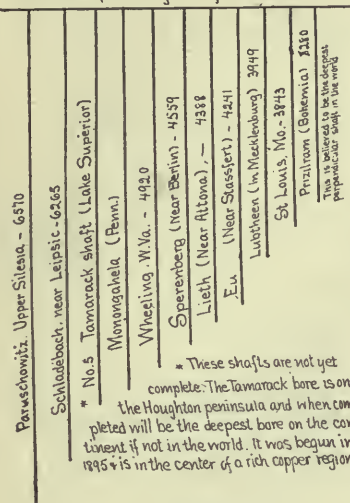 Paruschowitz. Upper Silesia - 6570
Schladebach. near Leipsic - 6265
* No.5 Tamarack shaft (Lake Superior)
Monongahela (Penn.)
Wheeling. W.Va. - 4920
Sperenberg (Near Berlin) - 4559
Lieth (Near Altona), - 4388
Eu (Near Stassfert) - 4241
Lubtheen (in Mecklenburg) 3949
St Louis. Mo. - 3843
Prizilram (Bohemia) 3280
This is believed to be the deepest
perpendicular shaft in the world
* These shafts are not yet
complete. The Tamarack bore is on
the Houghton peninsula and when com
pleted will be the deepest bore on the con
tinent if not in the world. It was begun in
1895 & is in the center of a rich copper region